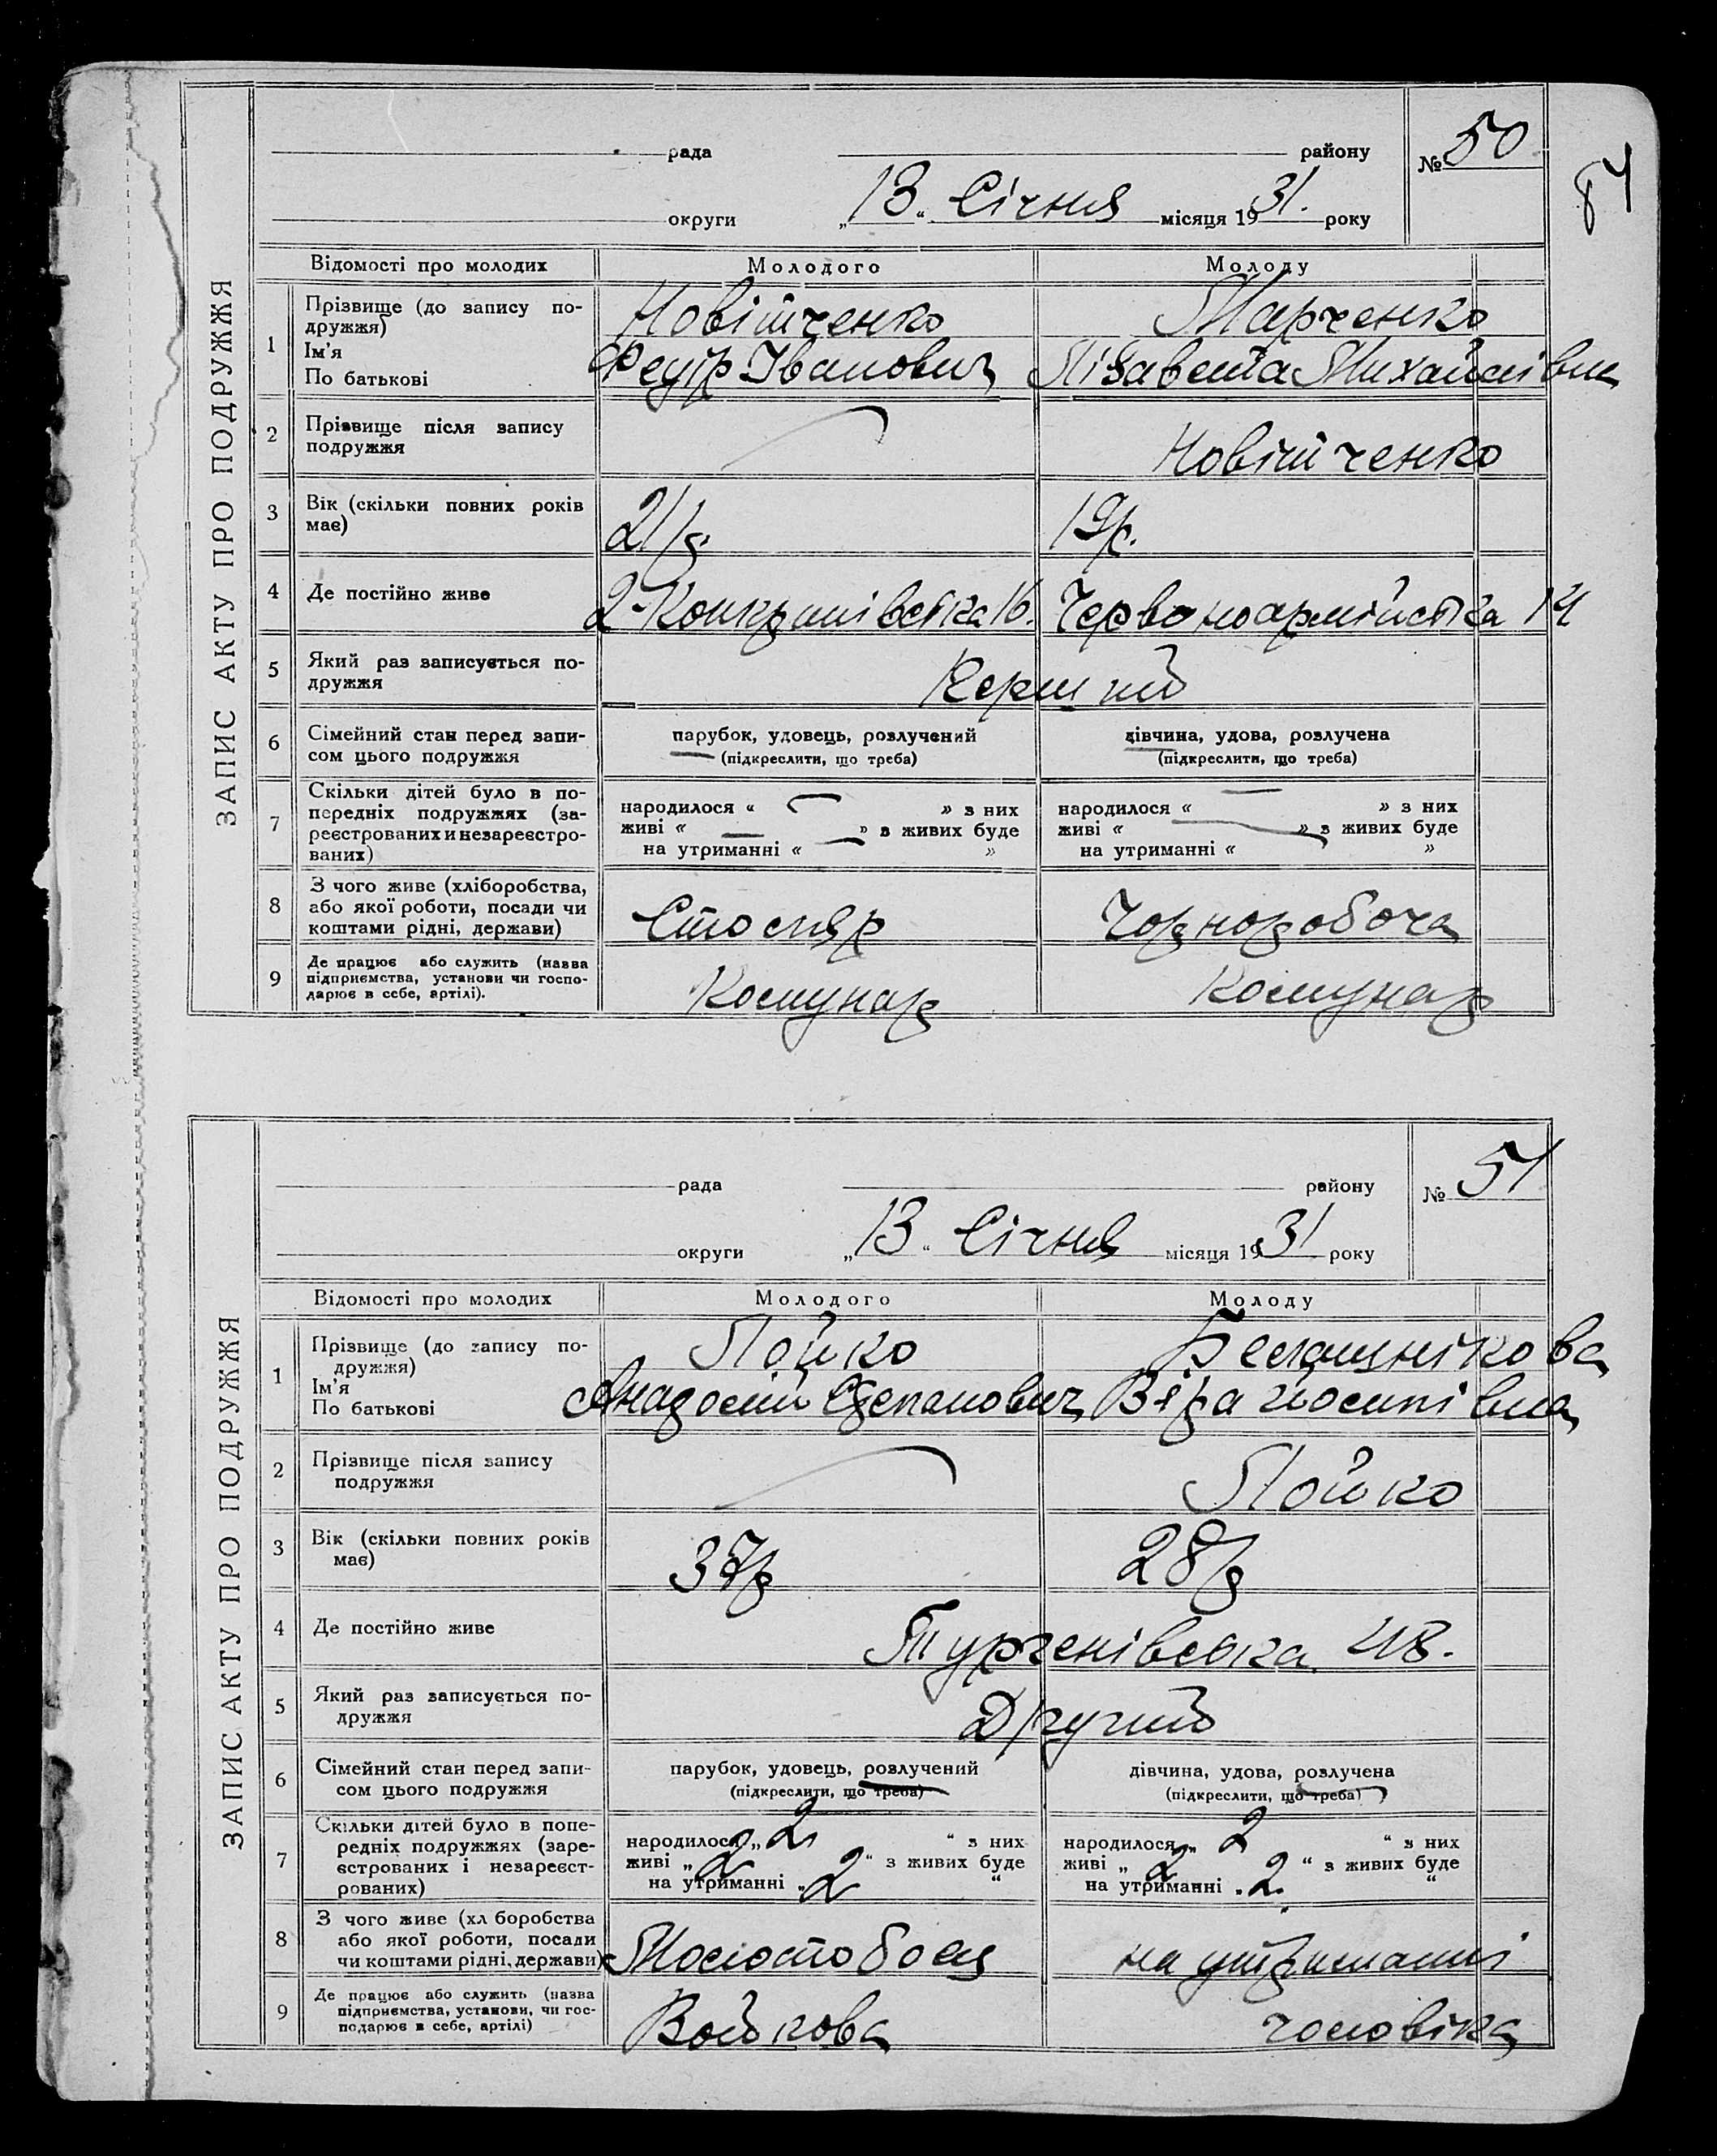 ЗАПИС АКТУ ПРО ПОДРУЖЖЯ
рада району № 50
округи „13“ Січня місяця 1931. року
Відомості про молодих Молодого Молоду
1 Прізвище (до запису по-
дружжя)
Ім'я
По батькові
Новітченко Марченко
Федір Іванович Лізавета Михайлівна
2 Прізвище після запису
подружжя
Новітченко
3 Вік (скільки повних років
має)
21/р. 19р.
4 Де постійно живе
Червоноармійська 14
5 Який раз записується по-
дружжя
Перший
6 Сімейний стан перед запи-
сом цього подружжя
парубок, удовець, розлучений дівчина, удова, розлучена
(підкреслити, що треба) (підкреслити, що треба)
7 Скільки дітей було в по-
передніх подружжях (за-
реєстрованих и незареєстро-
ваних)
народилося « — » з них народилося « — » з них
живі « — » з живих буде живі « — » з живих буде
на утриманні « — » на утриманні « »
8 З чого живе (хліборобства,
або якої роботи, посади чи
коштами рідні, держави)
Столяр Чорноробоча
9 Де працює або служить (назва
підприємства, установи чи госпо-
дарює в себе, артілі).
Комунар Комунар
ЗАПИС АКТУ ПРО ПОДРУЖЖЯ
рада району № 51
округи „13“ Січня місяця 1931 року
Відомості про молодих Молодого Молоду
1 Прізвище (до запису по-
дружжя)
Ім'я
По батькові
Лойко
Степанович Віра Йосипівна
2 Прізвище після запису
подружжя
Лойко
3 Вік (скільки повних років
має)
37р 28р
4 Де постійно живе
Тургенівська 48.
5 Який раз записується по-
дружжя
Другий
6 Сімейний стан перед запи-
сом цього подружжя
парубок, удовець, розлучений дівчина, удова, розлучена
(підкреслити, що треба) (підкреслити, що треба)
7 Скільки дітей було в попе-
редніх подружжях (заре-
єстрованих і незареєст-
рованих)
народилося „ 2 “ з них народилося „ 2 “ з них
живі „ 2 “ з живих буде живі „ 2 “ з живих буде
на утриманні „ 2 “ на утриманні „ 2. “
8 З чого живе (хл боробства
або якої роботи, посади
чи коштами рідні, держави)
Молотобоєц на утриманні
9 Де працює або служить (назва
підприємства, установи, чи гос-
подарює в себе, артілі)
Войкова чоловіка